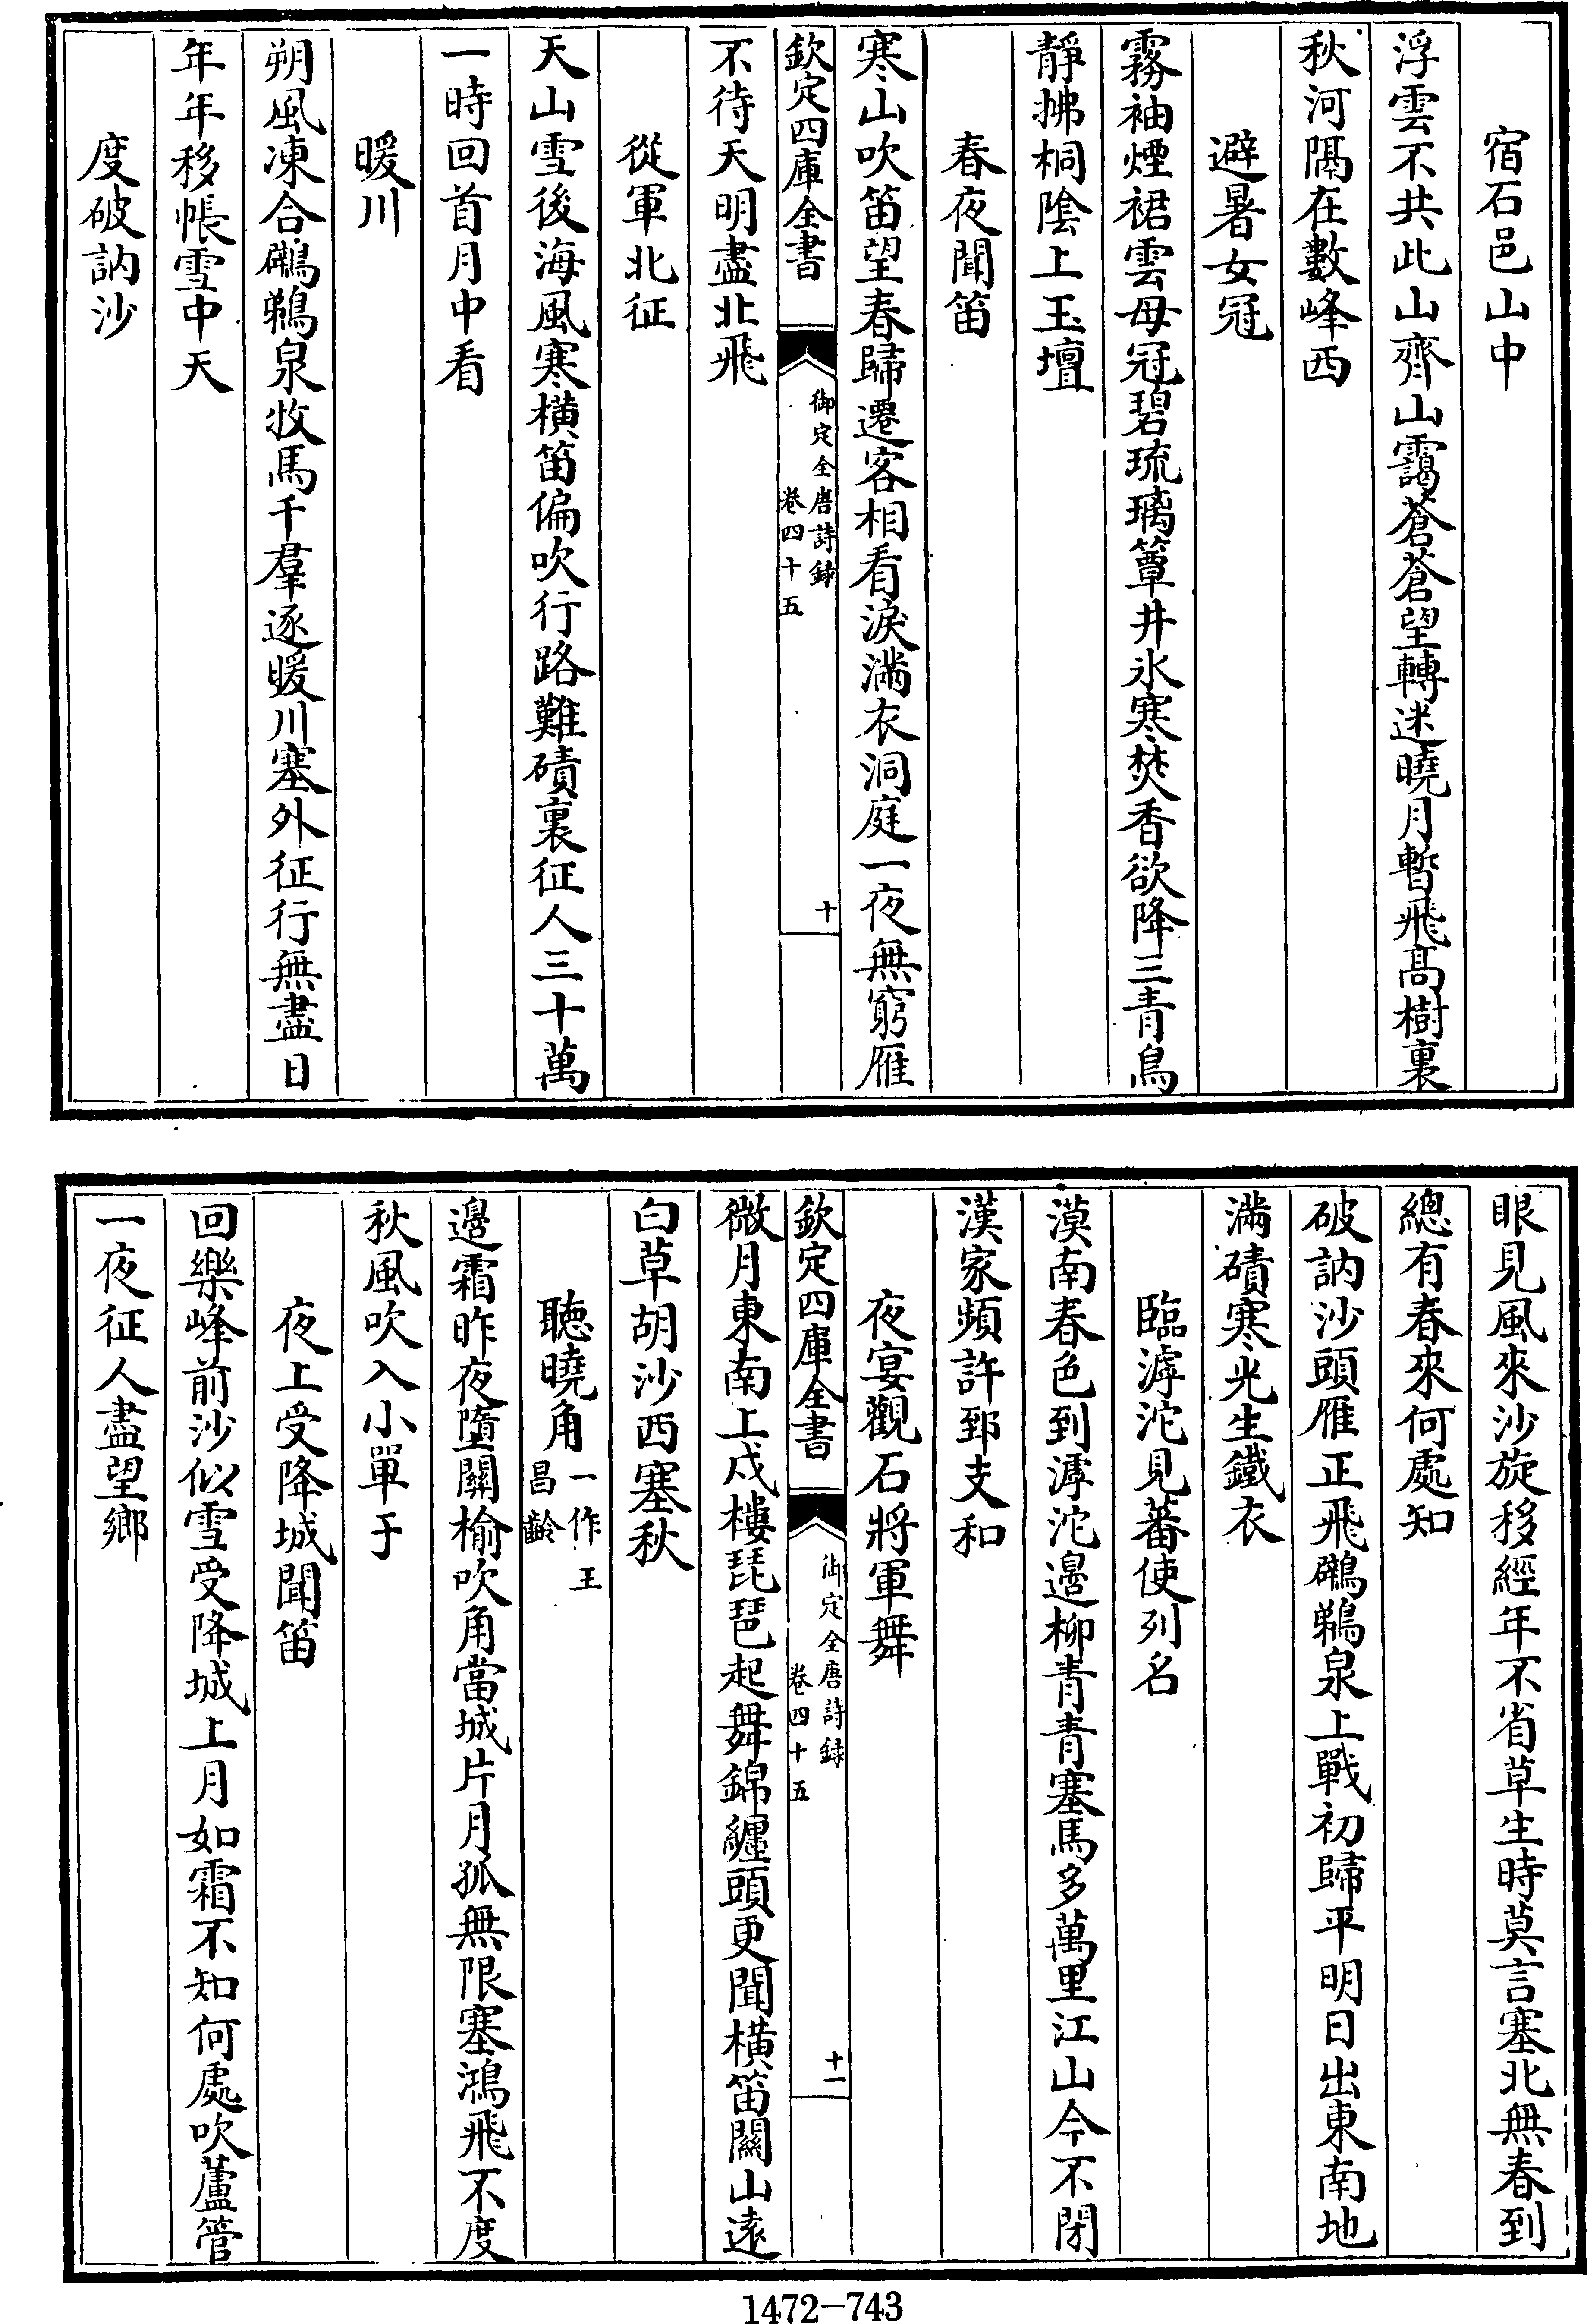 宿石邑山中
浮雲不共此山齊山靄蒼蒼望轉迷曉月暫飛髙樹裏
秋河隔在數峰西
避暑女冠
霧袖煙裙雲母冠碧琉璃簟井氷寒焚香欲降三青鳥
靜拂桐陰上玉壇
春夜聞笛
寒山吹笛望春歸遷客相看淚滿衣洞庭一夜無窮雁
欽定四庫全書
御定全唐詩録
卷四十五
十
不待天明盡北飛
從軍北征
天山雪後海風寒橫笛偏吹行路難磧裏征人三十萬
一時回首月中看
暖川
朔風凍合鸊鵜泉牧馬千羣逐暖川塞外征行無盡日
年年移帳雪中天
度破訥沙
眼見風來沙旋移經年不省草生時莫言塞北無春到
總有春來何處知
破訥沙頭雁正飛鸊鵜泉上戰初歸平明日出東南地
滿磧寒光生鐵衣
臨滹沱見蕃使列名
漠南春色到滹沱邊柳青青塞馬多萬里江山今不閉
漢家頻許郅支和
夜宴觀石將軍舞
欽定四庫全書
御定全唐詩録
卷四十五
十一
微月東南上戍樓琵琶起舞錦纏頭更聞橫笛關山遠
白草胡沙西塞秋
聽曉角一作王昌齡
邊霜昨夜墮關榆吹角當城片月孤無限塞鴻飛不度
秋風吹入小單于
夜上受降城聞笛
回樂峰前沙似雪受降城上月如霜不知何處吹蘆管
一夜征人盡望鄉
1472-743